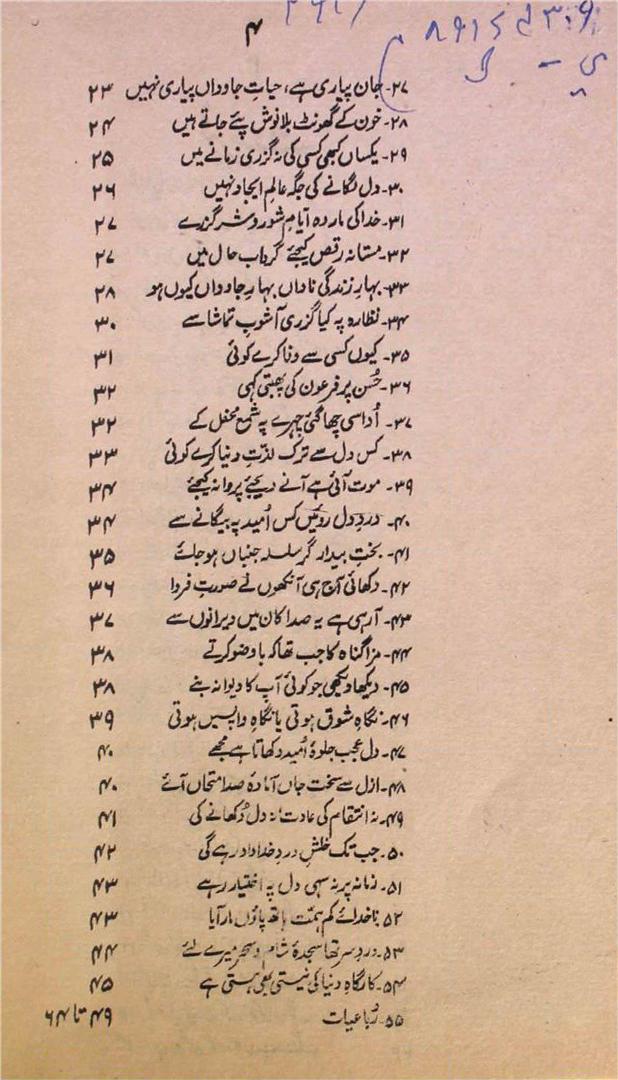 ۴
۲۷- جان پیاری ہے، حیاتِ جاوداں پیاری نہیں ۲۳
۲۸- خون کے گھونٹ بلا نوش پئے جاتے ہیں ۲۴
۲۹- یکساں کبھی کسی کی نہ گزری زمانے میں ۲۵
۳۰- دل لگانے کی جگہ عالمِ ایجاد نہیں ۲۶
۳۱- خدا کی مار وہ ایامِ شور و شر گزرے ۲۷
۳۲- مستانہ رقص کیجئے گردابِ حال میں ۲۷
۳۳- بہارِ زندگی ناداں بہارِ جاوداں کیوں ہو ۲۸
۳۴- نظارہ پہ کیا گزری آشوبِ تماشا سے ۳۰
۳۵- کیوں کسی سے وفا کرے کوئی ۳۱
۳۶- حُسن پر فرعون کی پھبتی کہی ۳۲
۳۷- اُداسی چھا گئی چہرے پہ شمع محفل کے ۳۲
۳۸- کس دل سے ترک لذتِ دنیا کرے کوئی ۳۳
۳۹- موت آئی ہے آنے دیجئے پروا نہ کیجئے ۳۴
۴۰- دردِ دل روئیں کس اُمید پہ بیگانے سے ۳۴
۴۱- بختِ بیدار گر سلسلہ جنباں ہو جائے ۳۵
۴۲- دکھائی آج ہی آنکھوں نے صورتِ فردا ۳۶
۴۳- آ رہی ہے یہ صدا کان میں ویرانوں سے ۳۷
۴۴- مزا گناہ کا جب تھا کہ باوضو کرتے ۳۸
۴۵- دیکھا دیکھی جو کوئی آپ کا دیوانہ بنے ۳۸
۴۶- نگاہِ شوق ہوتی یا نگاہِ واپسیں ہوتی ۳۹
۴۷- دل عجب جلوۂ اُمید دکھاتا ہے مجھے ۴۰
۴۸- ازل سے سخت جاں آمادۂ صد امتحاں آئے ۴۰
۴۹- نہ انتقام کی عادت نہ دل دُکھانے کی ۴۱
۵۰- جب تک خلشِ دردِ خداداد رہے گی ۴۲
۵۱- زمانہ پر نہ سہی دل پہ اختیار رہے ۴۳
۵۲- ناخدائے کم ہمّت ہاتھ پاؤں مار آیا ۴۳
۵۳- دردِ سر تھا سجدۂ شام و سحر میرے لئے ۴۴
۵۴- کارگاہِ دنیا کی نیستی بھی ہستی ہے ۴۵
۵۵- رُباعیات ۴۹ تا ۶۴